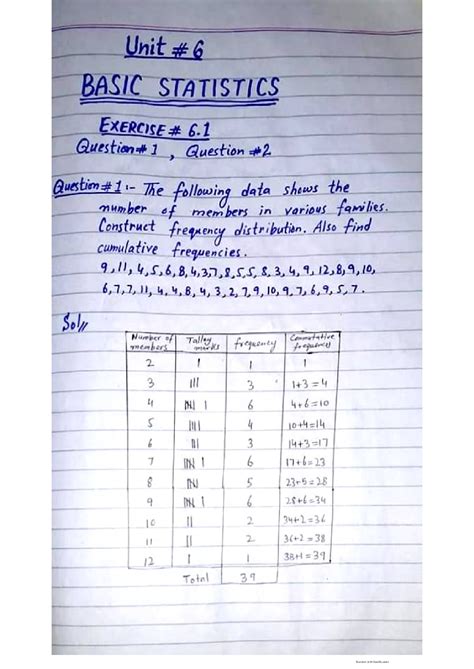 Unit # 6
BASIC STATISTICS
EXERCISE # 6.1
Question # 1 , Question # 2
Question # 1 :- The following data shows the
number of members in various families.
Construct frequency distribution. Also find
cumulative frequencies.
9, 11, 4, 5, 6, 8, 4, 3, 7, 8, 5, 5, 8, 3, 4, 9, 12, 8, 9, 10,
6, 7, 7, 11, 4, 4, 8, 4, 3, 2, 7, 9, 10, 9, 7, 6, 9, 5, 7 .
Sol//
Number of members Talley marks frequency Commutative frequency
2 | 1 1
3 ||| 3 1+3=4
4 |||| | 6 4+6=10
5 |||| 4 10+4=14
6 ||| 3 14+3=17
7 |||| | 6 17+6=23
8 |||| 5 23+5=28
9 |||| | 6 28+6=34
10 || 2 34+2=36
11 || 2 36+2=38
12 | 1 38+1=39
Total 39